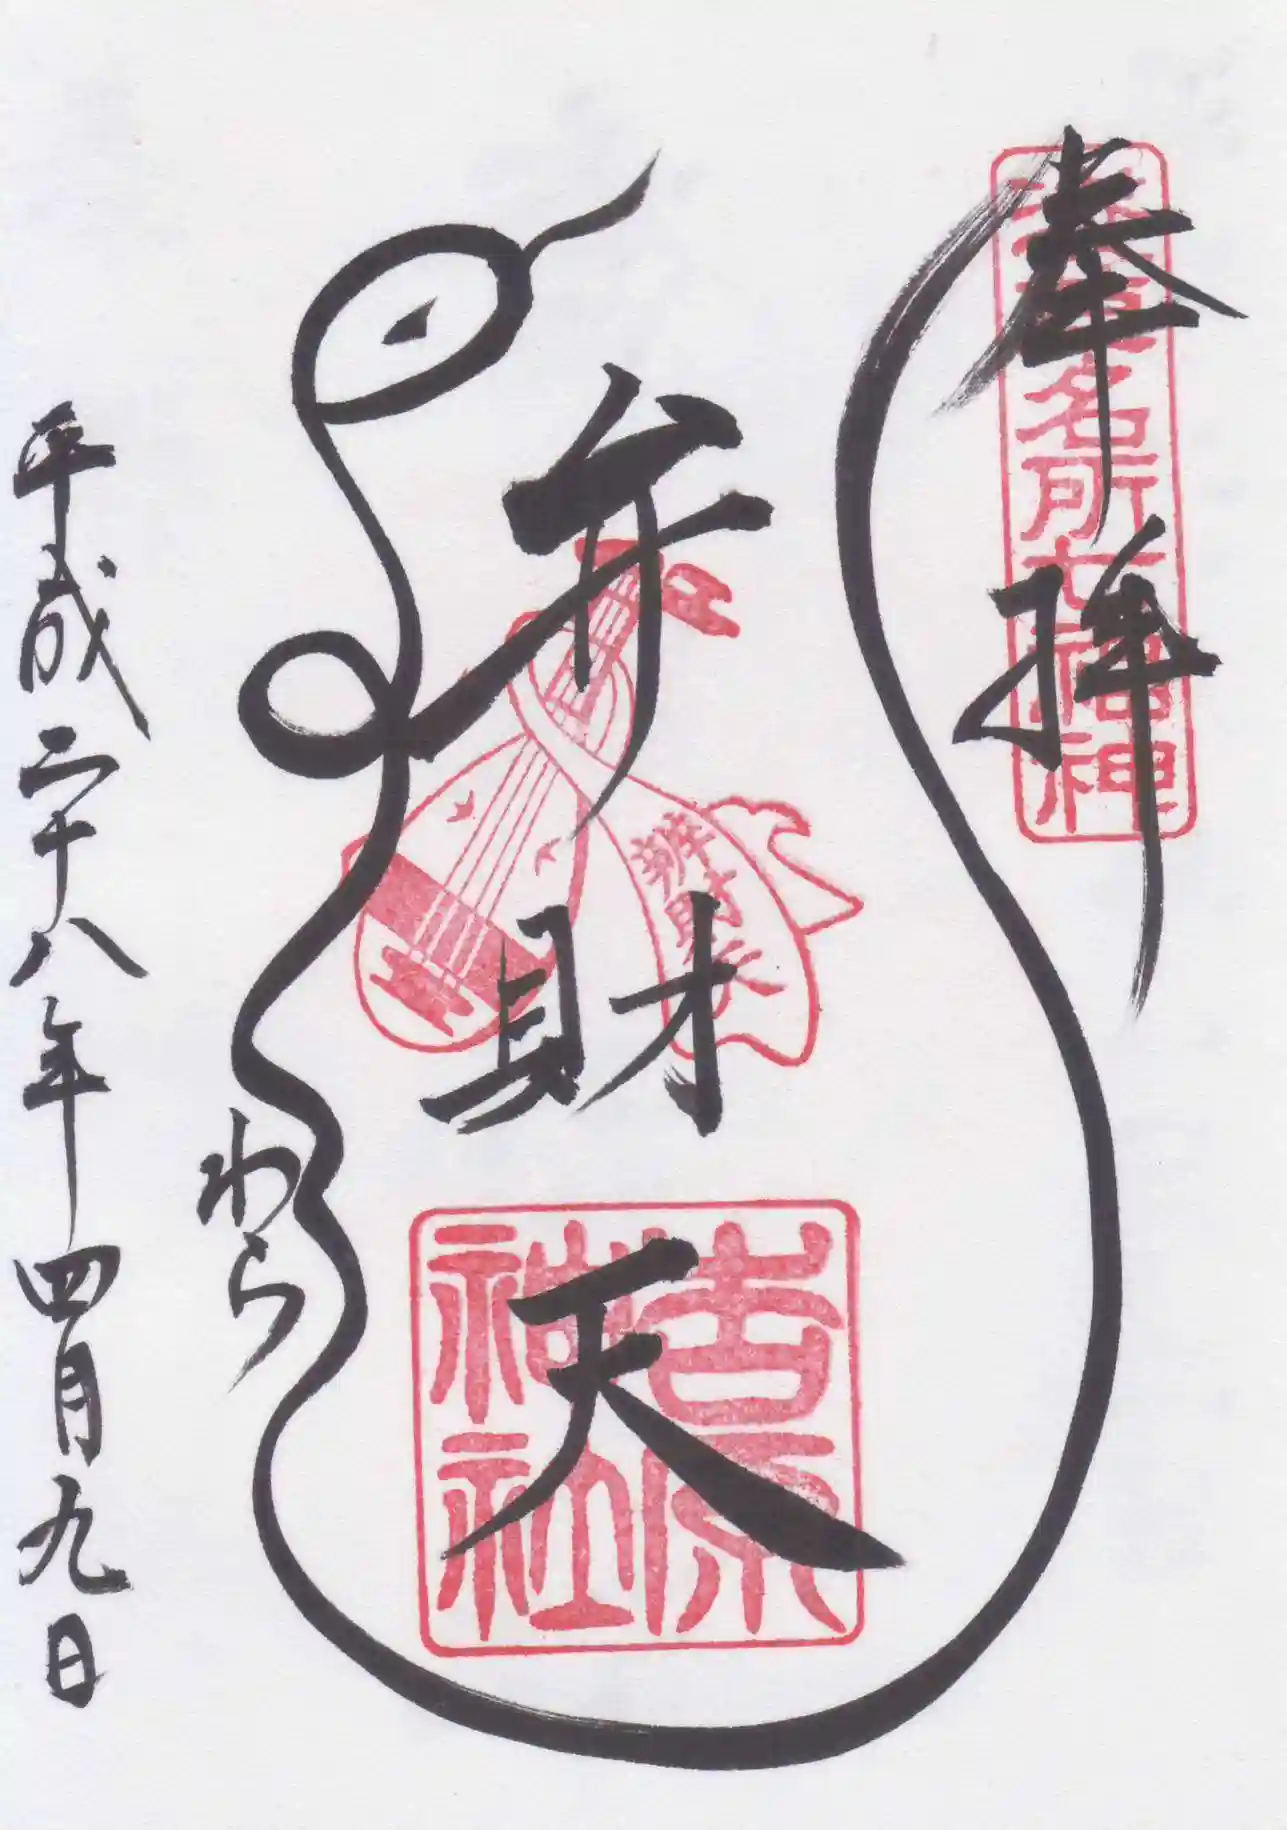 奉拝
浅草名所七福神
弁財天
辨財天
吉原神社
わら
平成二十八年四月九日